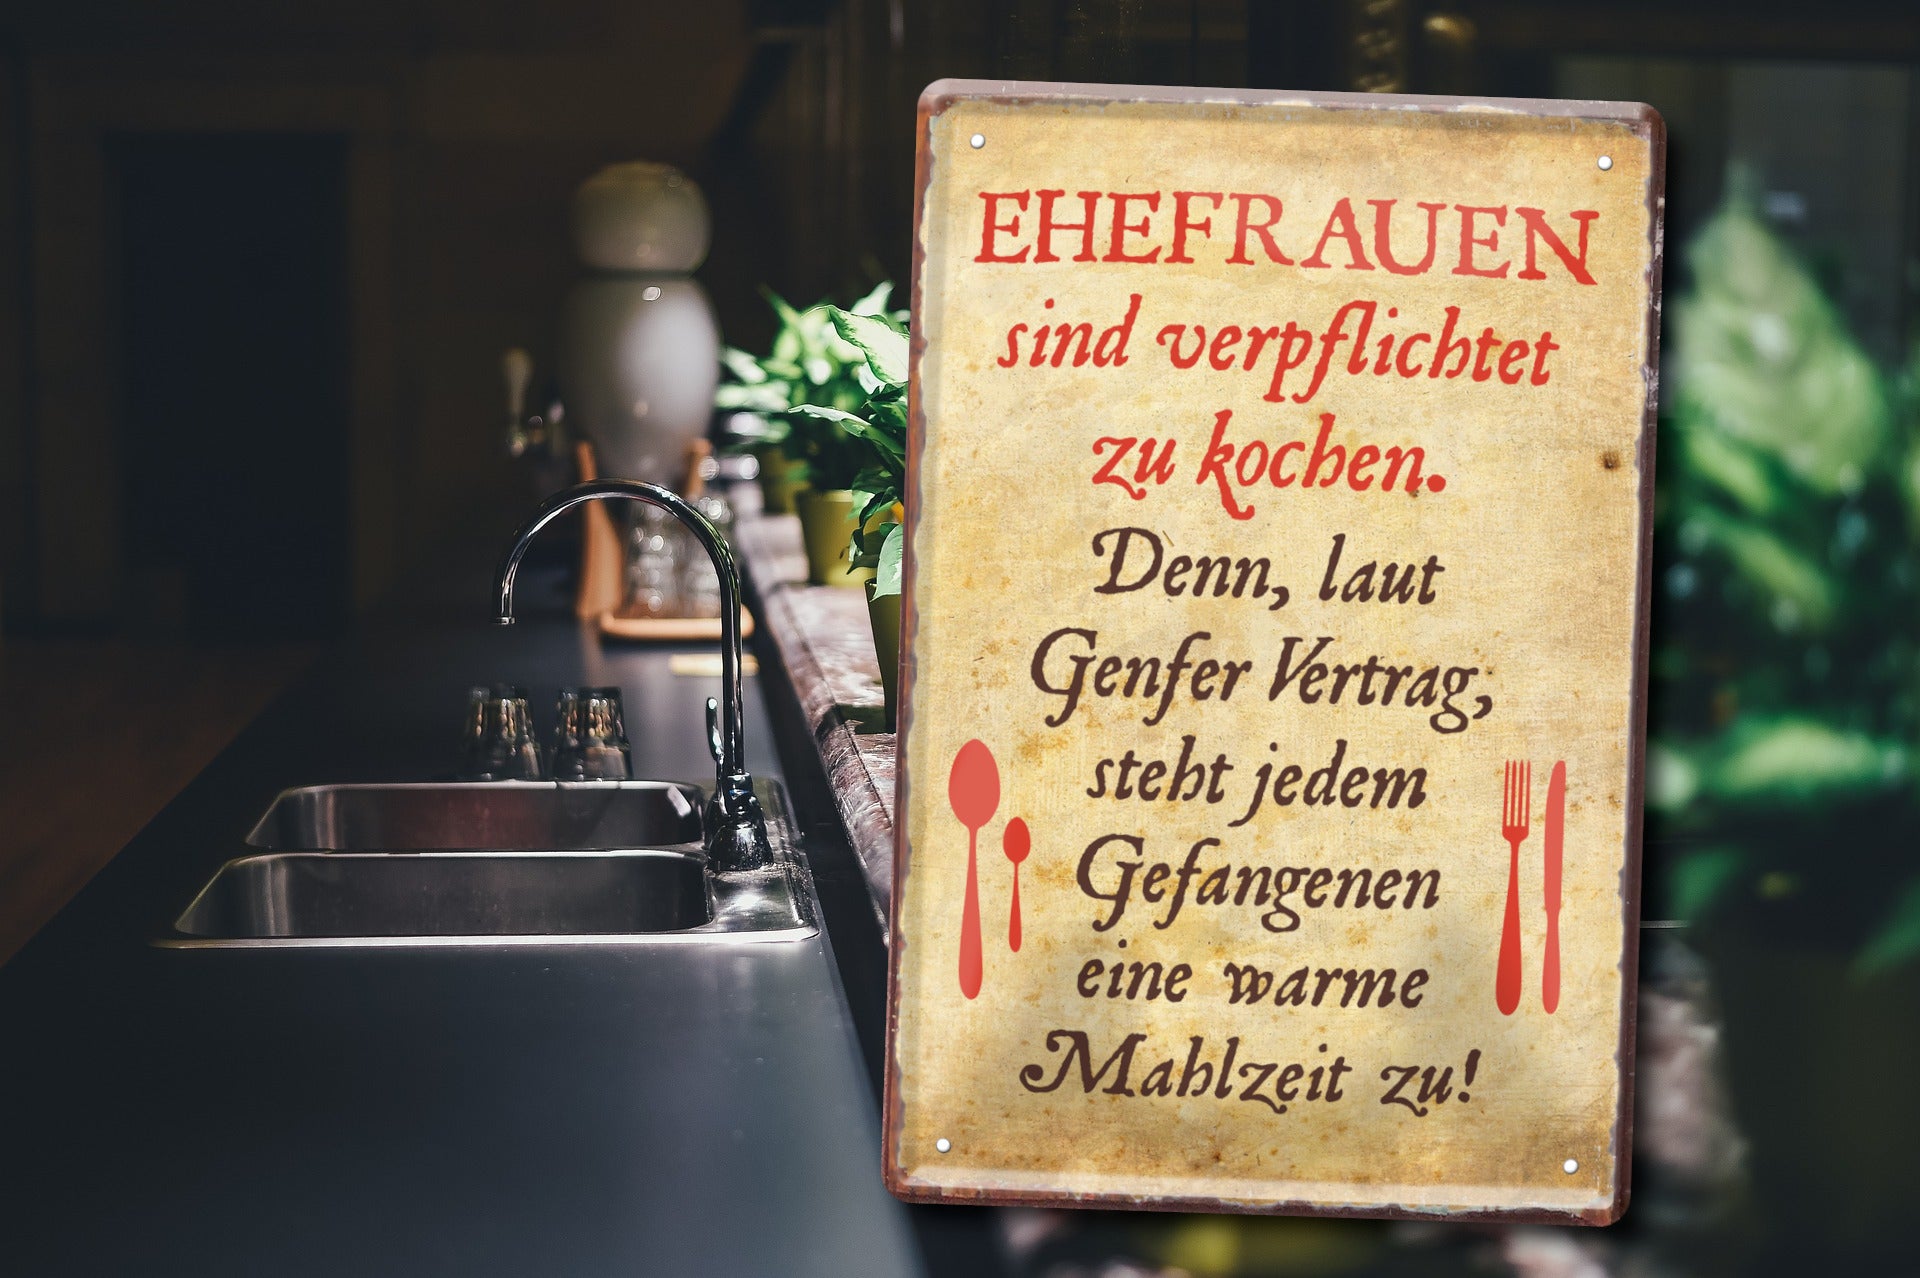 EHEFRAUEN
sind verpflichtet
zu kochen.
Denn, laut
Genfer Vertrag,
steht jedem
Gefangenen
eine warme
Mahlzeit zu!